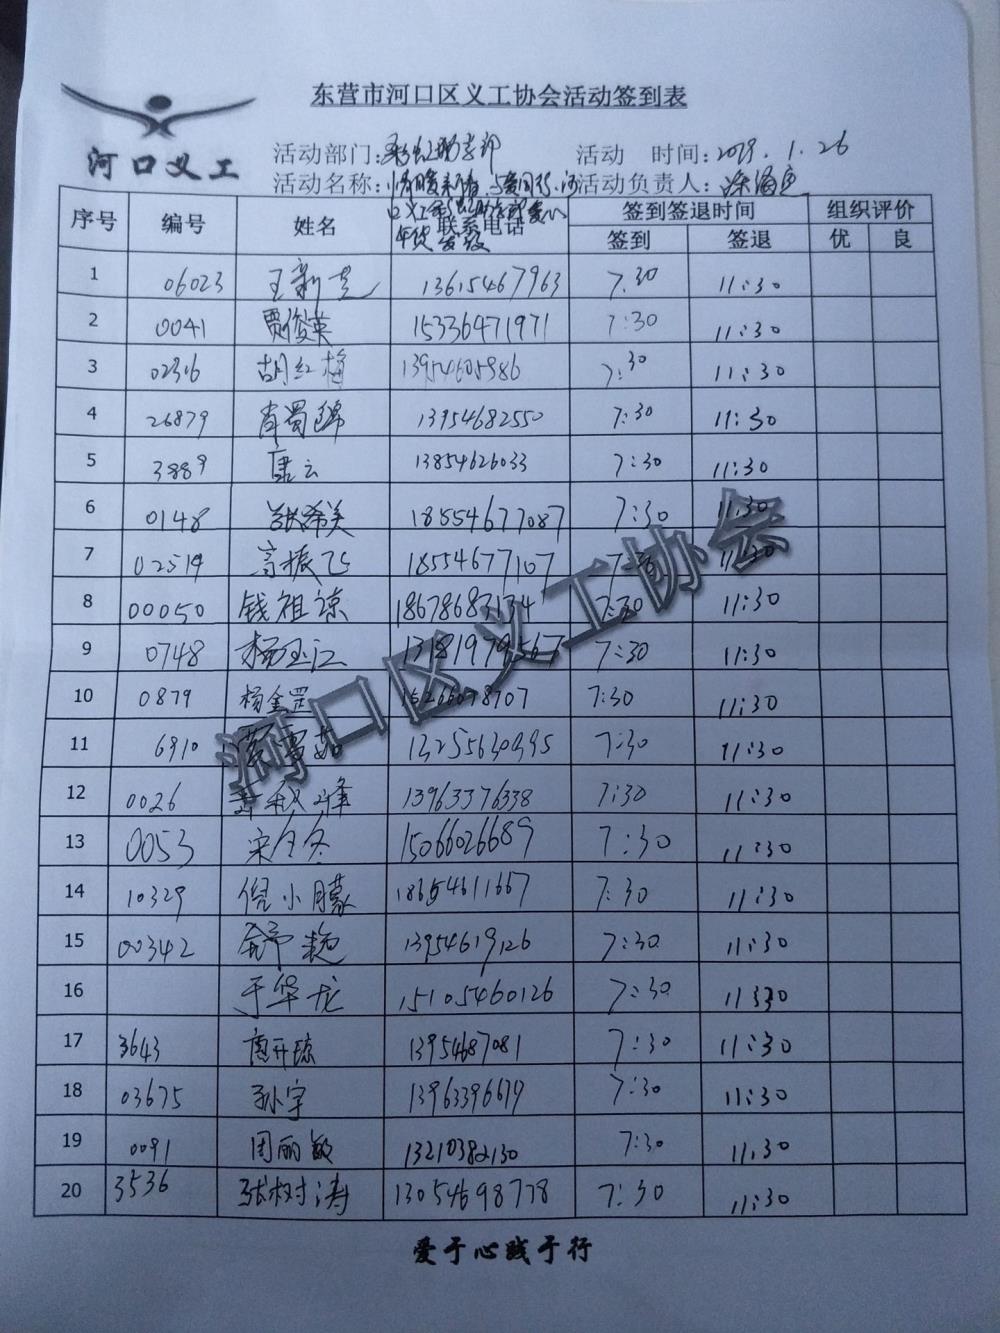 东营市河口区义工协会活动签到表
河口义工
活动部门: 活动 时间: 2019.1.26
活动名称: 活动负责人:
序号 编号 姓名 联系电话 签到签退时间 组织评价
签到 签退 优 良
1 06023 王新 13615467963 7:30 11:30
2 0041 贾俊英 15336471971 7:30 11:30
3 02316 胡红梅 13954605986 7:30 11:30
4 26879 肖蜀锦 13954682550 7:30 11:30
5 3889 唐云 13854626033 7:30 11:30
6 0148 张希美 18554677087 7:30 11:30
7 02519 高振飞 18554677107 7:30 11:30
8 00050 钱祖谅 7:30 11:30
9 0748 杨玉江 7:30 11:30
10 0879 杨金罡 15266078707 7:30 11:30
11 6910 7:30 11:30
12 0026 13963376338 7:30 11:30
13 0053 宋冬冬 15066026689 7:30 11:30
14 10329 倪小朦 18654611667 7:30 11:30
15 00342 舒艳 13954619126 7:30 11:30
16 于华龙 15105460126 7:30 11:30
17 3643 唐开琼 13954687081 7:30 11:30
18 03675 孙宇 13963396679 7:30 11:30
19 0091 周丽敏 13210382130 7:30 11:30
20 3536 张树涛 13054698778 7:30 11:30
河口区义工协会
爱于心践于行